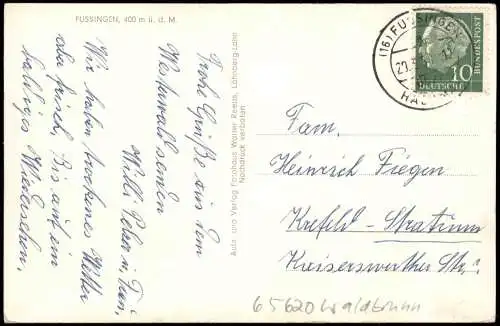 FUSSINGEN, 400 m ü. d. M.
Frohe Grüße aus dem
Westerwald senden
Willi, Peter u. Frau,
Wir haben trockenes Wetter
aber frisch. Bis auf ein
baldiges Wiedersehen.
Aufn. und Verlag Fotohaus Werner Reeth, Löhnberg-Lahn
Nachdruck verboten
(16) FUSSINGEN
20.
HADAMAR
10
DEUTSCHE
BUNDESPOST
Fam.
Heinrich Fiegen
Krefeld-Stratum
Kaiserswerther Str.
65620 Waldbrunn